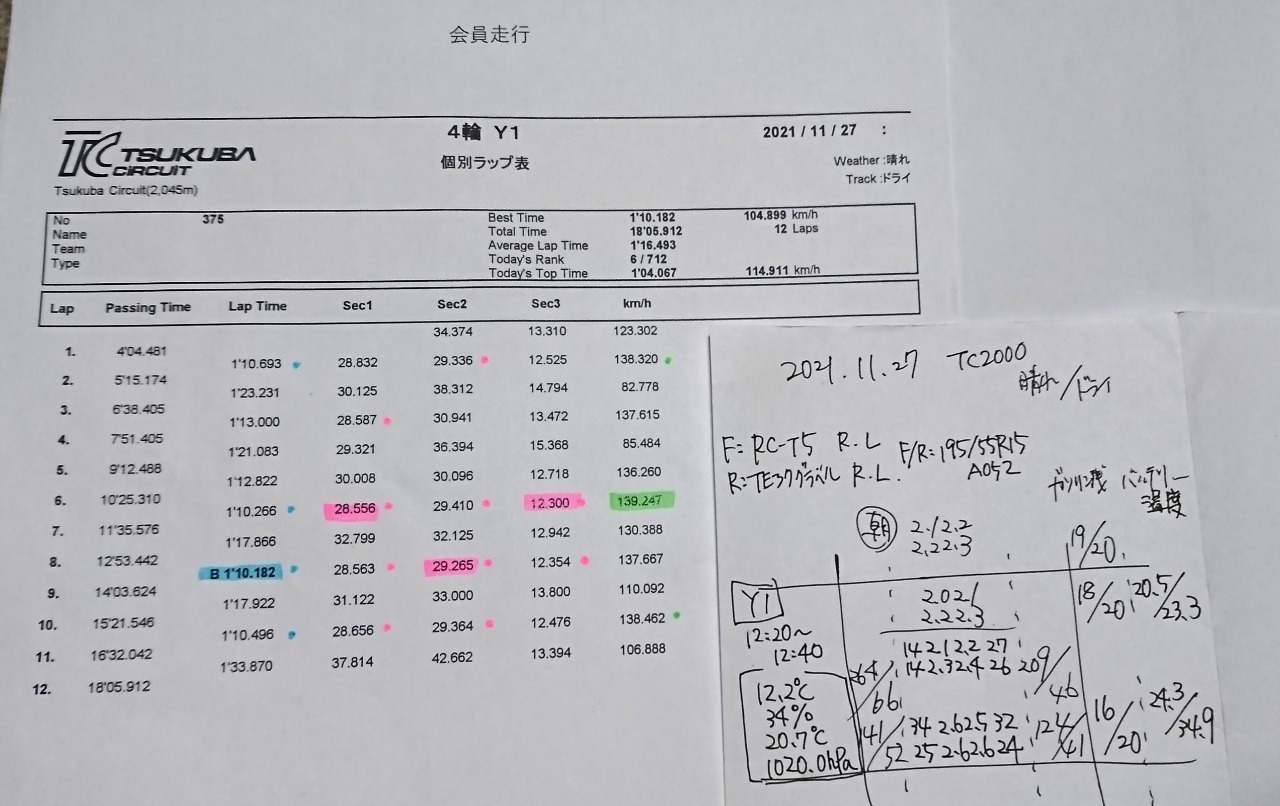 会員走行
TC TSUKUBA CIRCUIT
Tsukuba Circuit(2,045m)
4輪 Y1
個別ラップ表
2021 / 11 / 27 :
Weather :晴れ
Track :ドライ
No 375
Name
Team
Type
Best Time 1'10.182 104.899 km/h
Total Time 18'05.912 12 Laps
Average Lap Time 1'16.493
Today's Rank 6 / 712
Today's Top Time 1'04.067 114.911 km/h
Lap Passing Time Lap Time Sec1 Sec2 Sec3 km/h
34.374 13.310 123.302
1. 4'04.481
1'10.693 28.832 29.336 12.525 138.320
2. 5'15.174
1'23.231 30.125 38.312 14.794 82.778
3. 6'38.405
1'13.000 28.587 30.941 13.472 137.615
4. 7'51.405
1'21.083 29.321 36.394 15.368 85.484
5. 9'12.488
1'12.822 30.008 30.096 12.718 136.260
6. 10'25.310
1'10.266 28.556 29.410 12.300 139.247
7. 11'35.576
1'17.866 32.799 32.125 12.942 130.388
8. 12'53.442
B 1'10.182 28.563 29.265 12.354 137.667
9. 14'03.624
1'17.922 31.122 33.000 13.800 110.092
10. 15'21.546
1'10.496 28.656 29.364 12.476 138.462
11. 16'32.042
1'33.870 37.814 42.662 13.394 106.888
12. 18'05.912
2021.11.27 TC2000
晴れ/ドライ
F=RC-T5 R.L F/R=195/55R15
R=TE37グラベル R.L. A052
ガソリン残 バッテリー
温度
朝 2.12.2
2.22.3
19/20
Y1
12:20~
12:40
2.02.1
2.22.3
18/20 20.5/23.3
142.12.2 27
64/66 142.32.4 26 209/46
41/52 34 2.62.5 32
25 2.62.6 24 124/41
16/20 24.3/34.9
12.2℃
34%
20.7℃
1020.0hPa